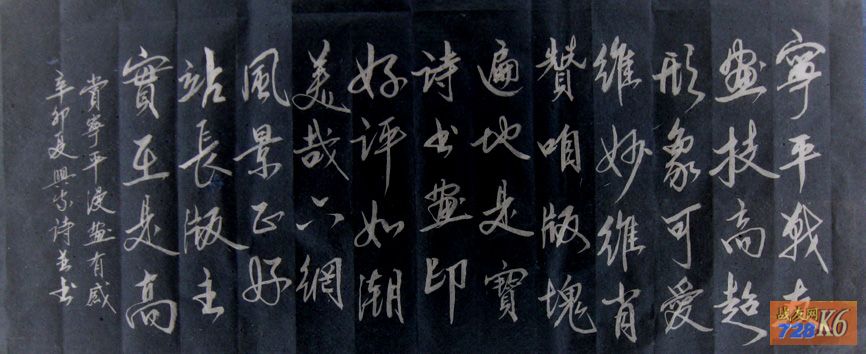 寧平戰友
畫技高超
形象可愛
維妙維肖
贊咱版塊
遍地是寶
詩书畫印
好评如潮
美哉六網
風景正好
站長版主
實至是高
賞寧平漫畫有感
辛卯夏興家詩并书
战友网
728
K6